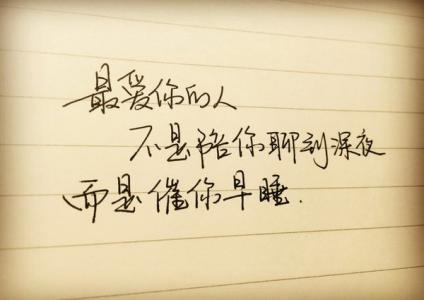 最爱你的人
不是陪你聊到深夜
而是催你早睡.